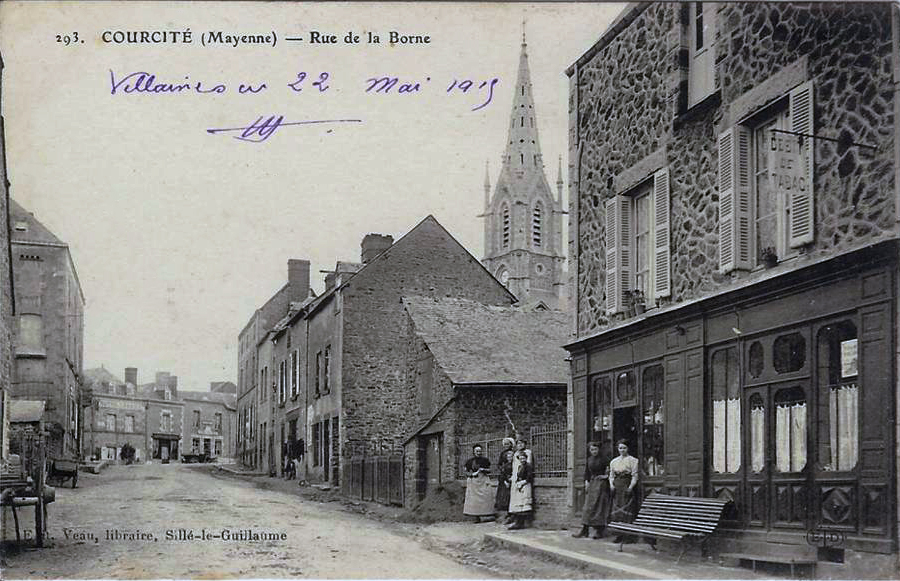 293. COURCITÉ (Mayenne) — Rue de la Borne
Villaines en 22 Mai 1915
DÉBIT
DE
TABAC
Veau, libraire, Sillé-le-Guillaume
(E.D)